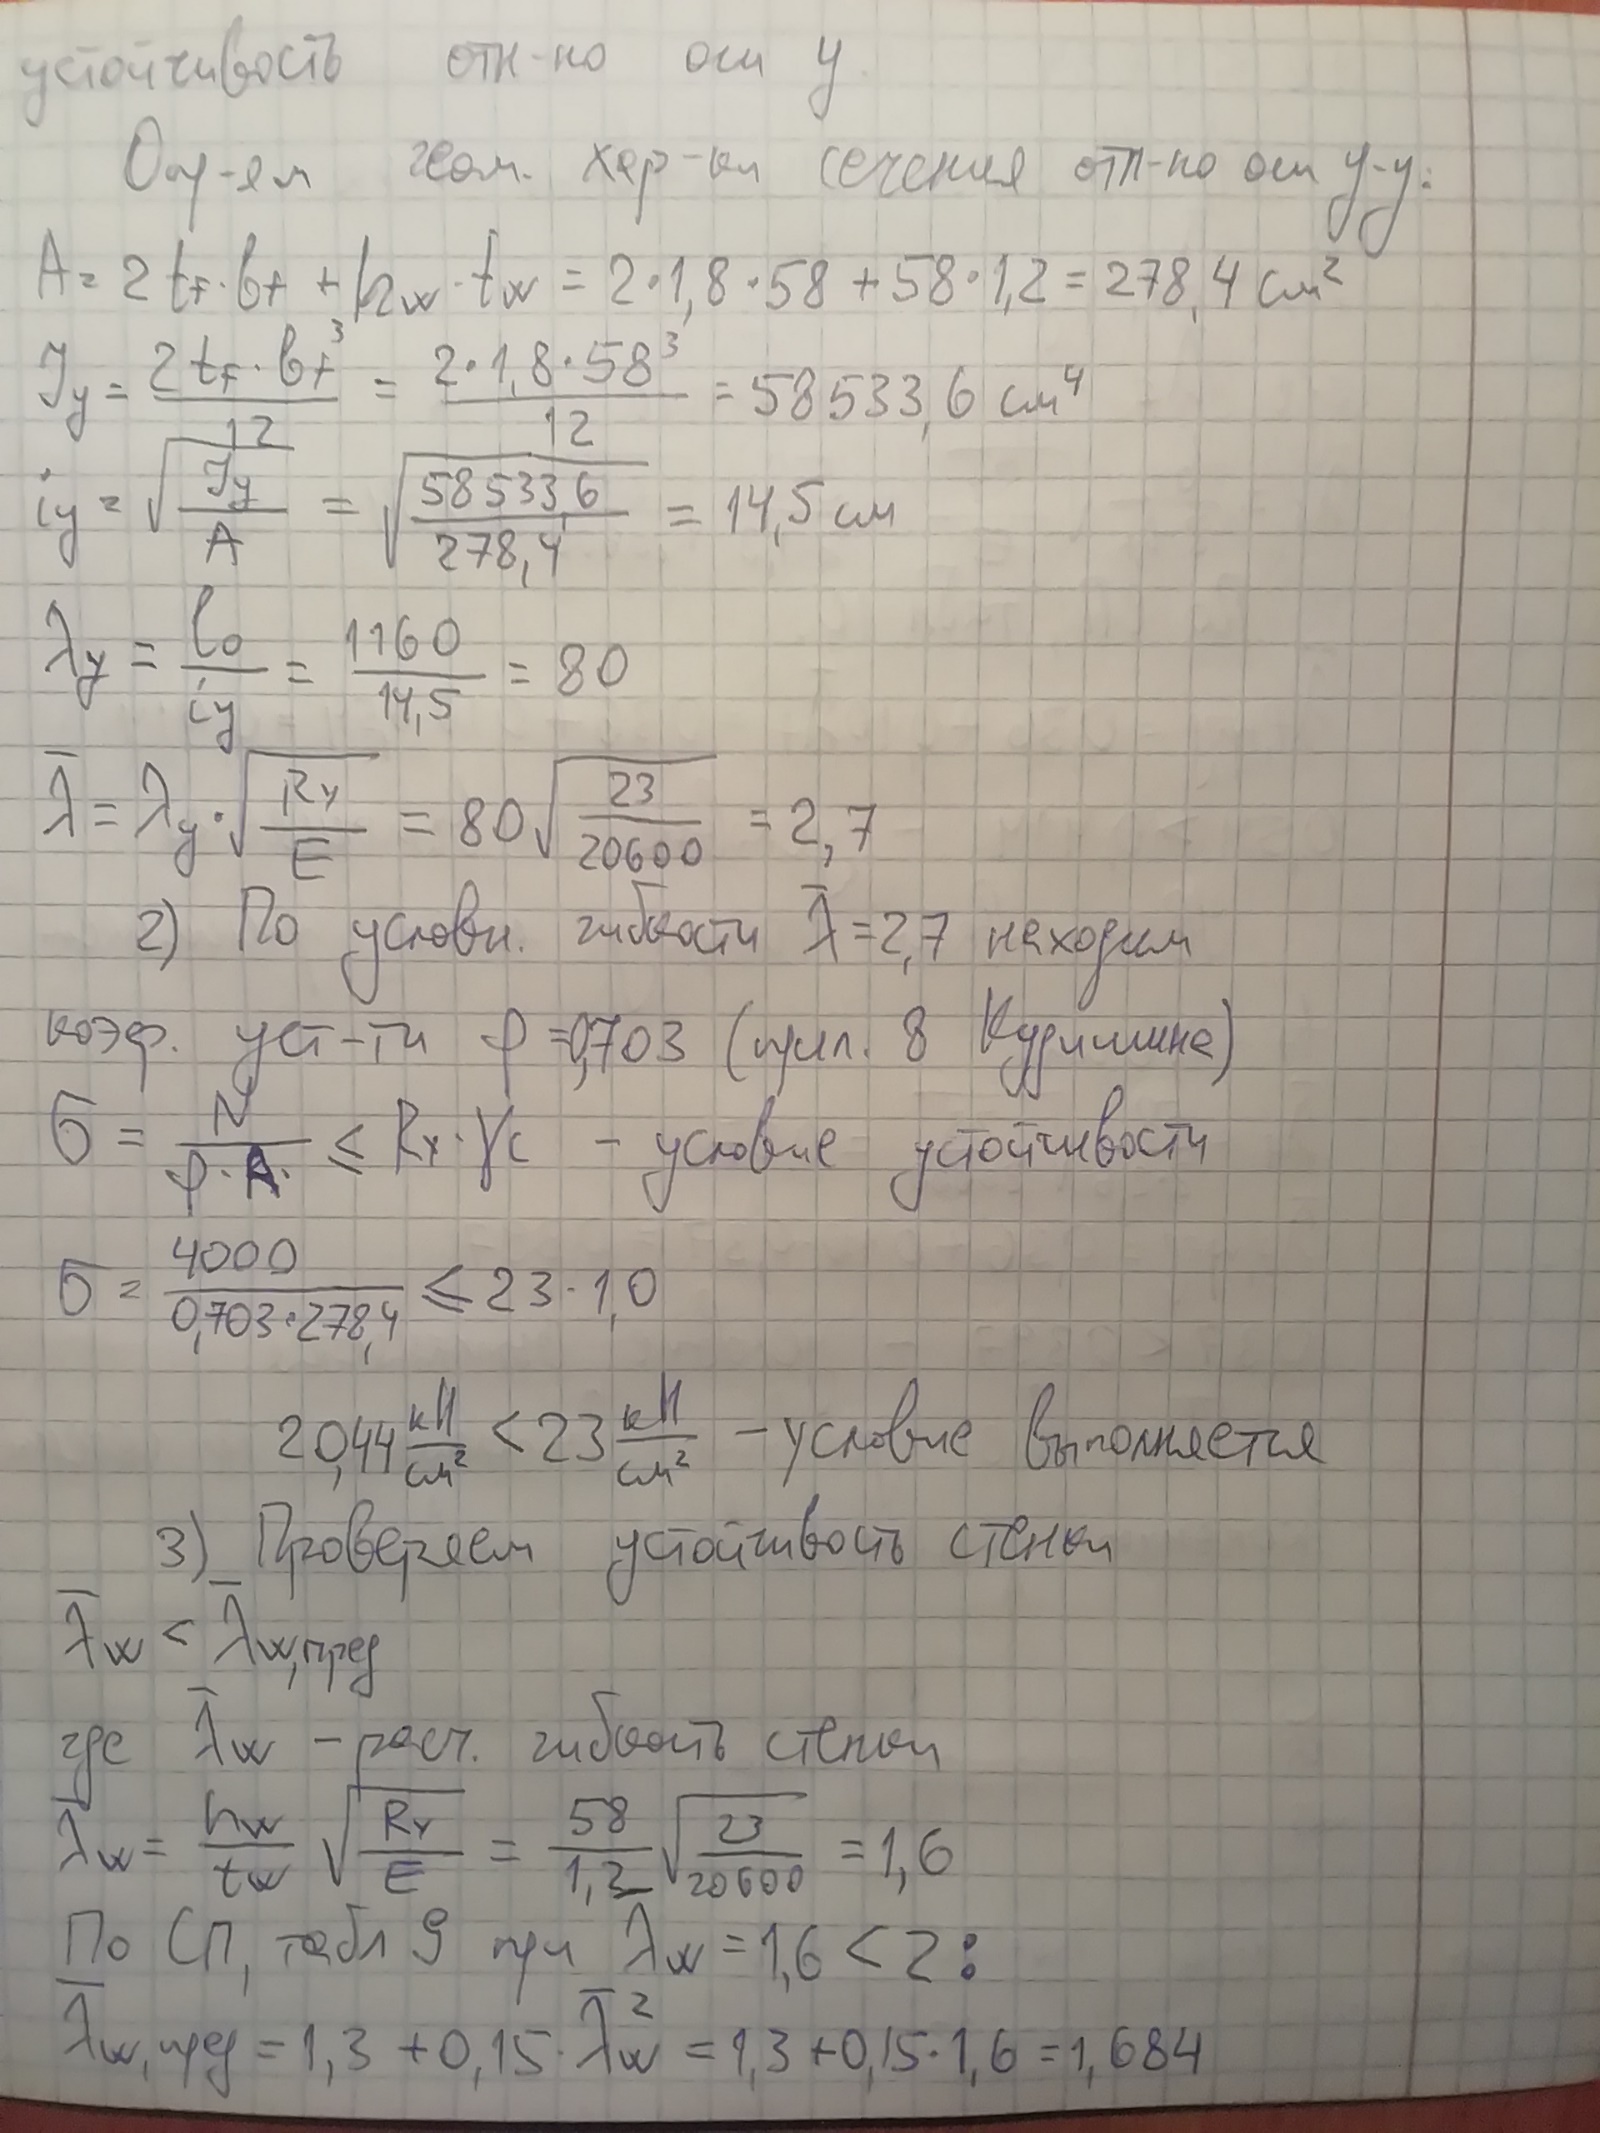 устойчивость отн-но оси y
Опр-ем геом. хар-ки сечения отн-но оси y-y:
A = 2 tf · bf + hw · tw = 2·1,8·58 + 58·1,2 = 278,4 см²
Jy = 2 tf · bf³ / 12 = 2·1,8·58³ / 12 = 58533,6 см⁴
iy = √(Jy / A) = √(58533,6 / 278,4) = 14,5 см
λy = l0 / iy = 1160 / 14,5 = 80
λ̄ = λy · √(Ry / E) = 80 √(23 / 20600) = 2,7
2) По условн. гибкости λ̄ = 2,7 находим
коэф. уст-ти φ = 0,703 (прил. 8 Кудишина)
σ = N / φ·A· ≤ Ry · γc – условие устойчивости
σ = 4000 / 0,703·278,4 ≤ 23 · 1,0
20,44 кН/см² < 23 кН/см² – условие выполняется
3) Проверяем устойчивость стенки
λ̄w < λ̄w,пред
где λ̄w – расч. гибкость стенки
λ̄w = hw / tw √(Ry / E) = 58 / 1,2 √(23 / 20600) = 1,6
По СП, табл 9 при λ̄w = 1,6 < 2 :
λ̄w,пред = 1,3 + 0,15 · λ̄w² = 1,3 + 0,15 · 1,6 = 1,684